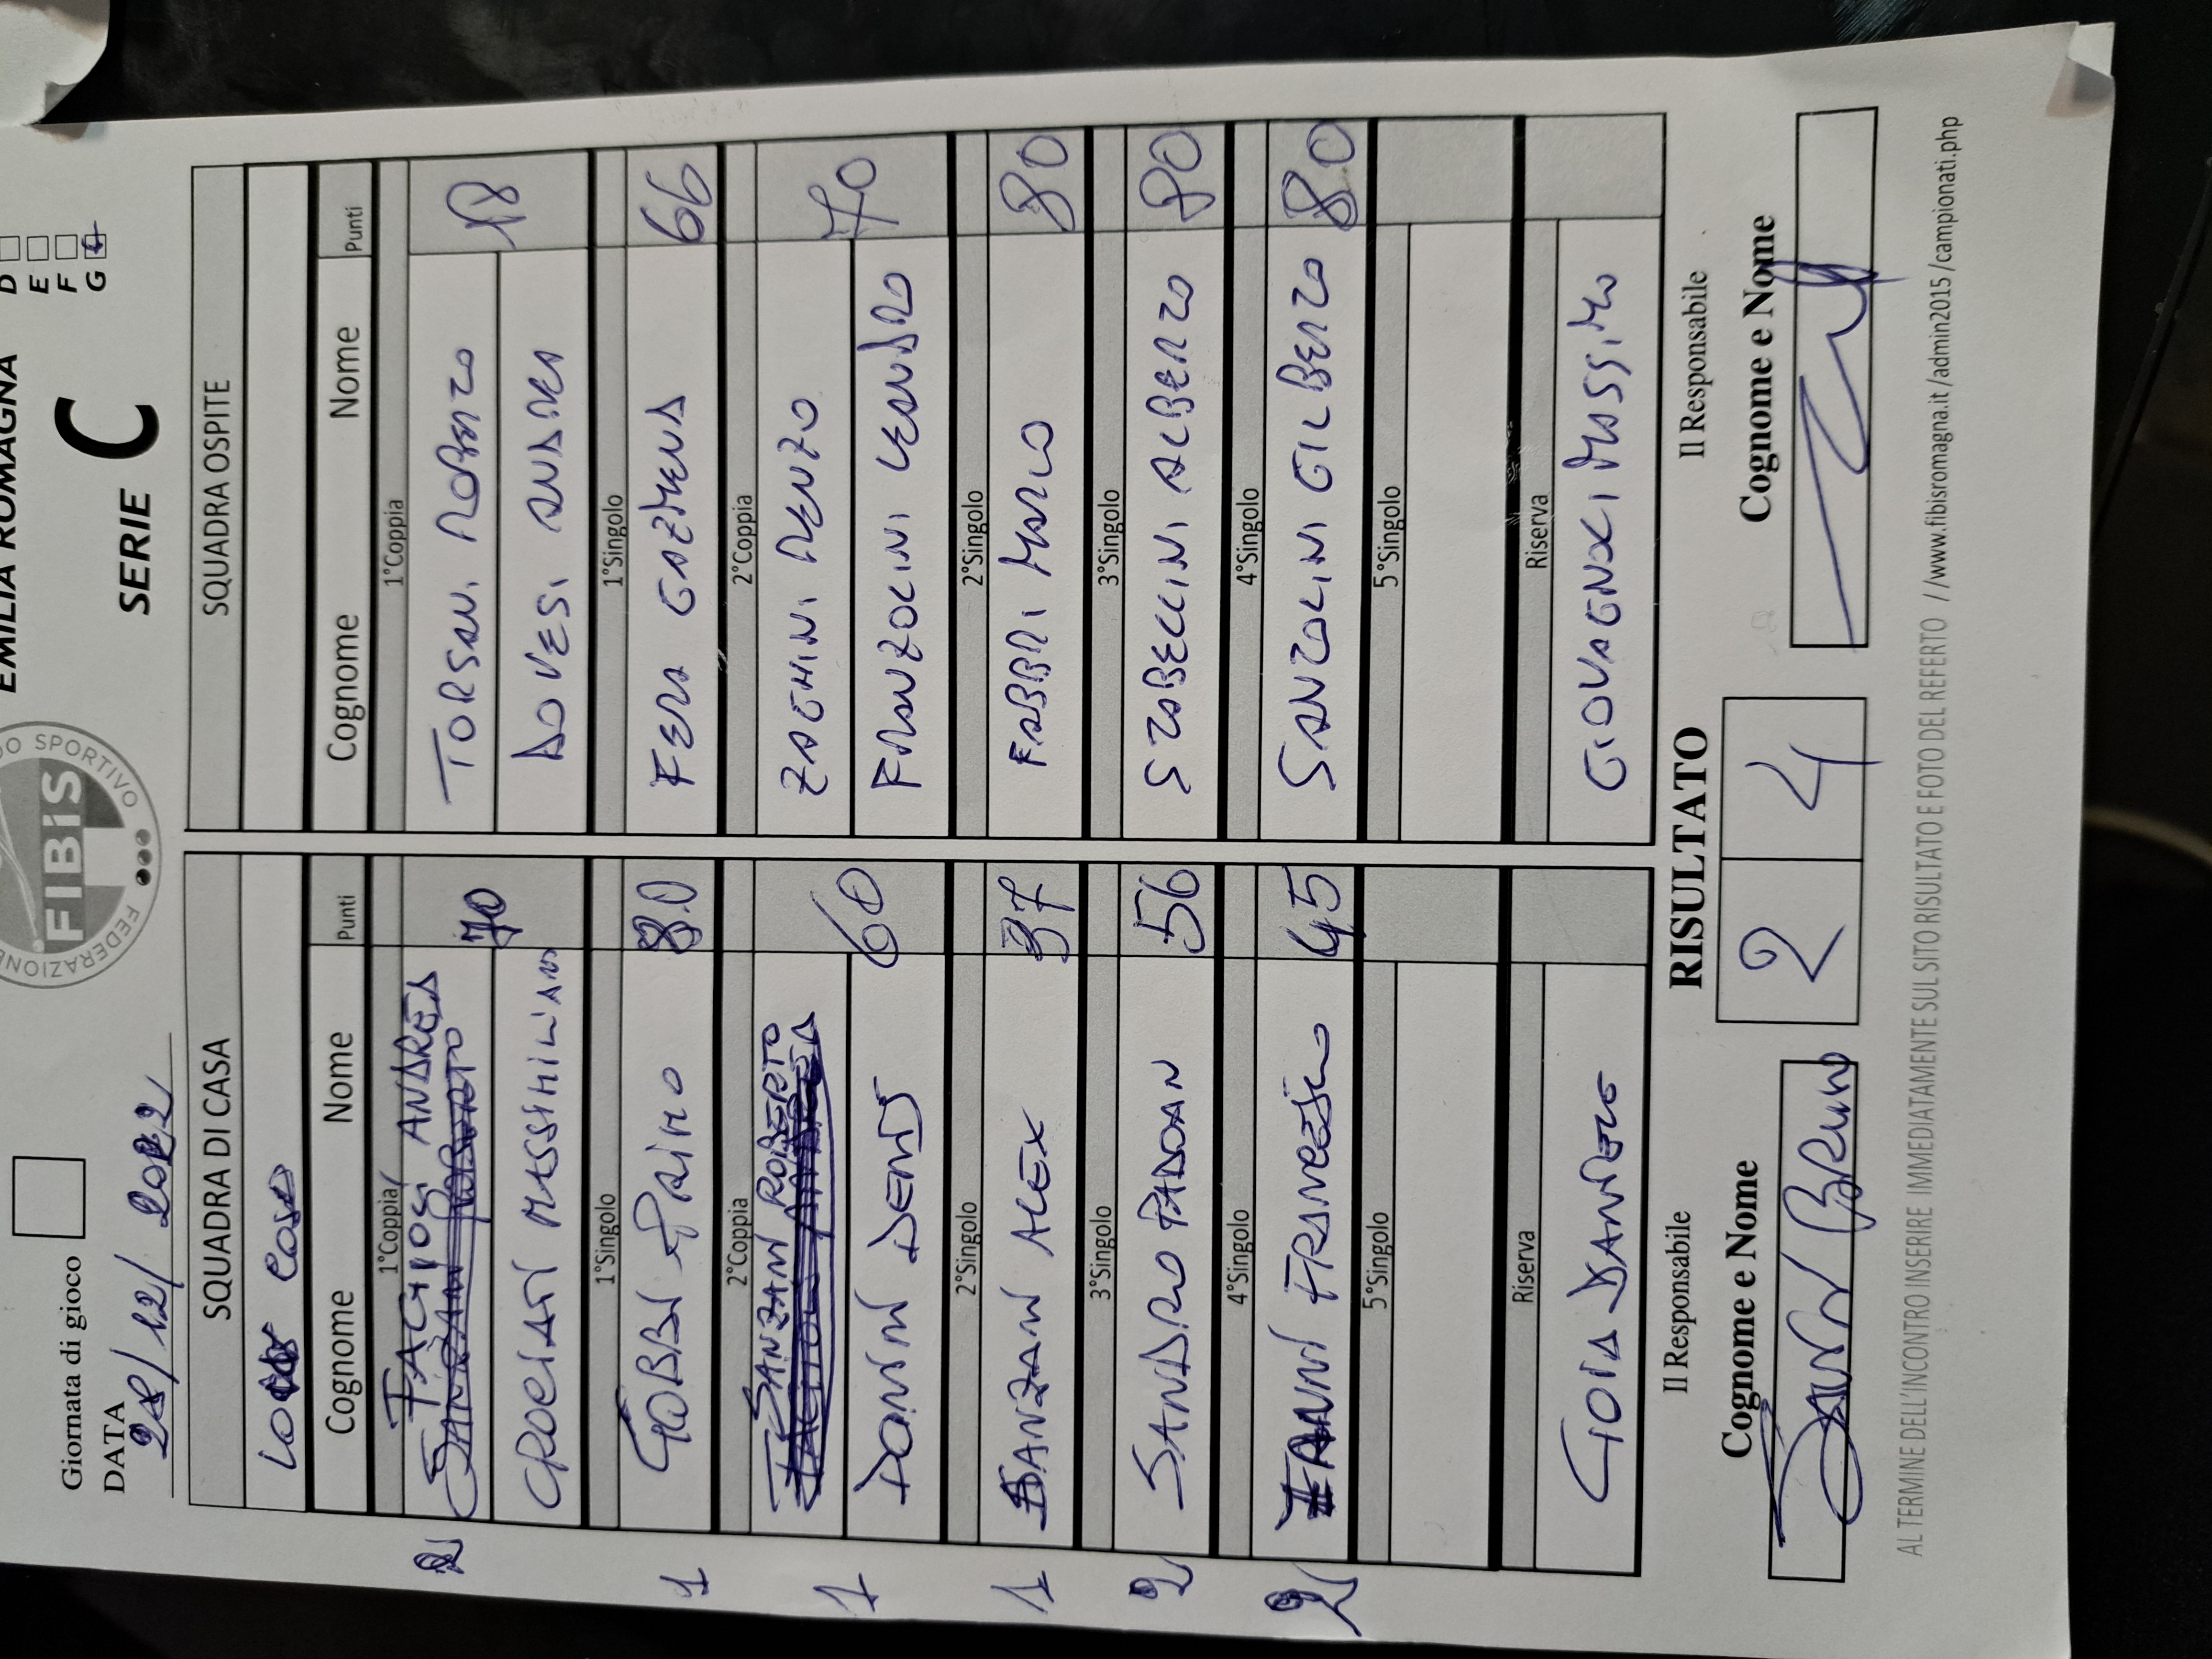 EMILIA ROMAGNA
D
E
F
G
FEDERAZIONE
DO SPORTIVO
FIBiS
SERIE C
Giornata di gioco
DATA
28/12/2022
SQUADRA DI CASA
SQUADRA OSPITE
Cognome Nome Punti
Cognome Nome Punti
1°Coppia
1°Coppia
FAGIOLI ANDREA
70
TORSANI ROBERTO
18
MASSIMILIANO
ANDREA
1°Singolo
1°Singolo
GOBBI PRIMO
80
FERA GAZMEND
66
2°Coppia
2°Coppia
DANZANI ROBERTO
60
ZAGHINI RENZO
70
DONINI DENIS
FRANZOLINI LEANDRO
2°Singolo
2°Singolo
DANZANI ALEX
37
FABBRI MARCO
80
3°Singolo
3°Singolo
SANDRO PADOAN
56
STABELLINI ALBERTO
80
4°Singolo
4°Singolo
ZANNI FRANCESCO
45
SANTOLINI GILBERTO
80
5°Singolo
5°Singolo
Riserva
Riserva
GIOIA DANILO
MASSIMO
2
1
1
1
2
2
RISULTATO
2 4
Il Responsabile
Il Responsabile
Cognome e Nome
Cognome e Nome
AL TERMINE DELL'INCONTRO INSERIRE IMMEDIATAMENTE SUL SITO RISULTATO E FOTO DEL REFERTO //www.fibisromagna.it/admin2015/campionati.php